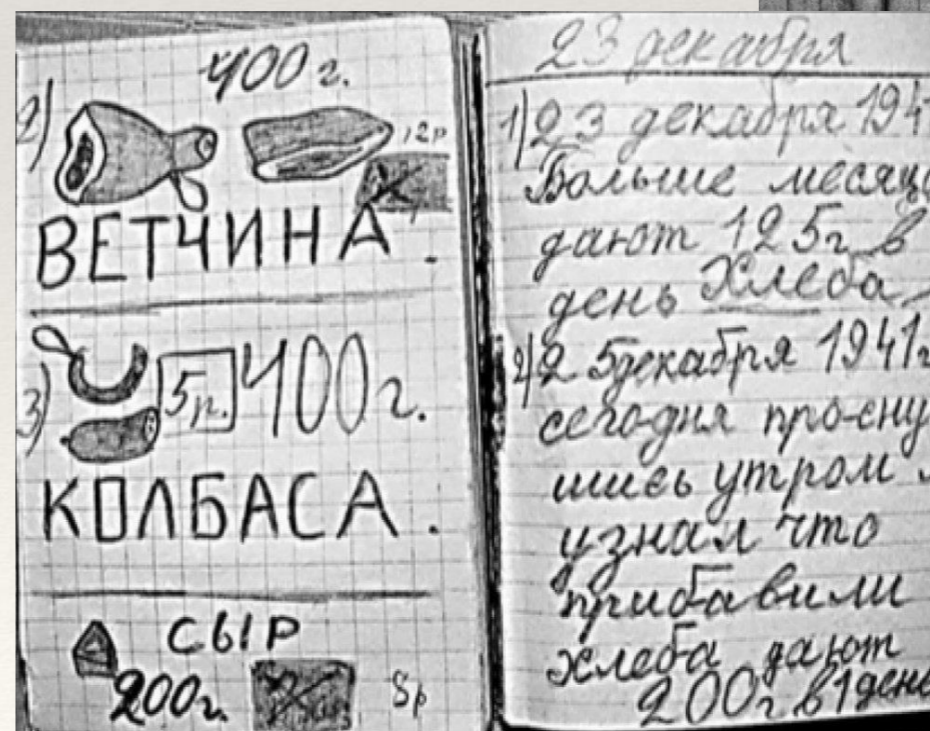 400 г.
2)
12р
ВЕТЧИНА.
3)
5р.
400г.
КОЛБАСА.
СЫР
200г.
8р
23 декабря
1) 23 декабря 194
Больше месяца
дают 125г в
день Хлеба
2) 25 декабря 1941г
сегодня просну
шись утром
узнал что
прибавили
хлеба дают
200г в 1 день